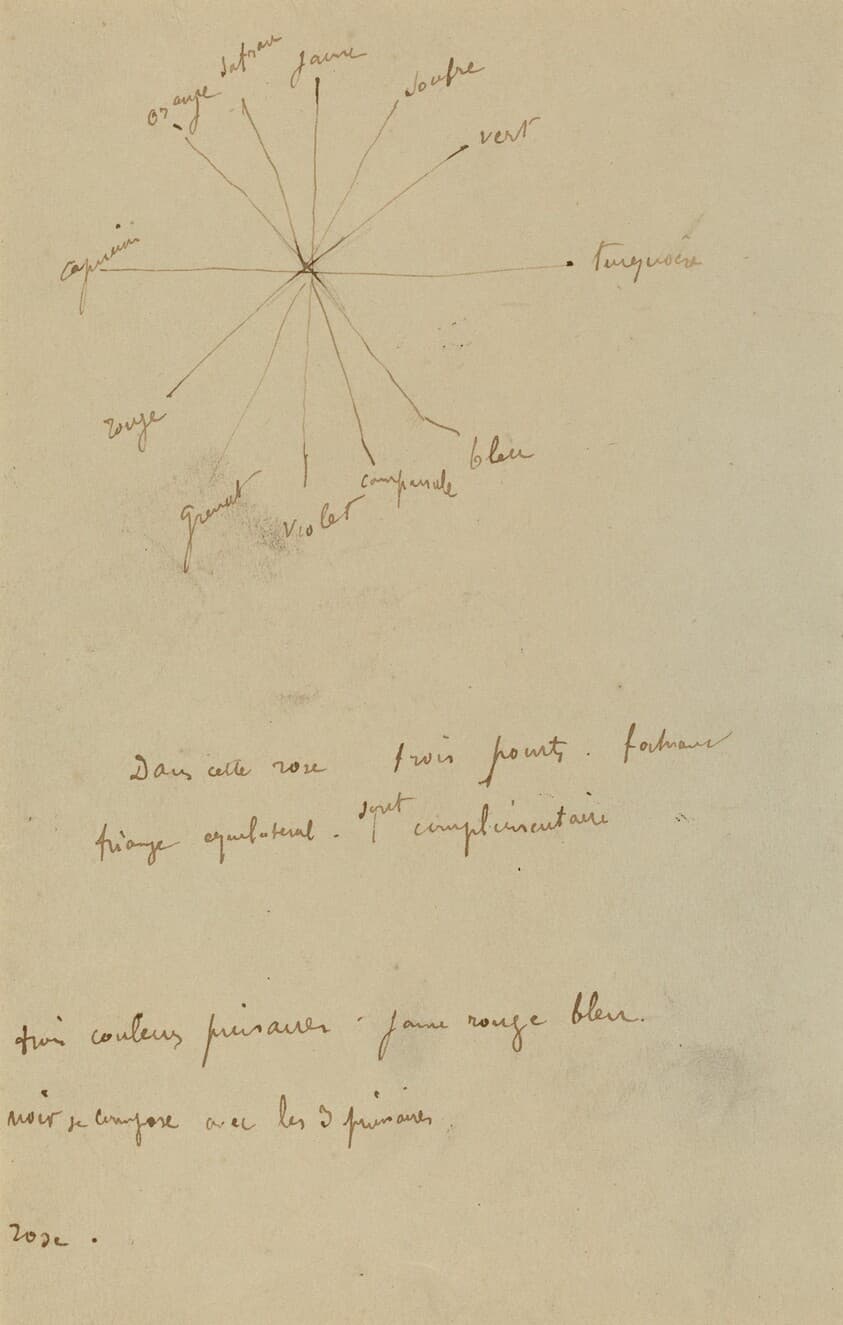 orange
safran
jaune
soufre
vert
turquoise
bleu
campanule
violet
grenat
rouge
capucine
Dans cette rose trois points. formant
triangle equilateral - sont complémentaire
trois couleurs primaires - jaune rouge bleu.
noir se compose avec les 3 primaires
rose.